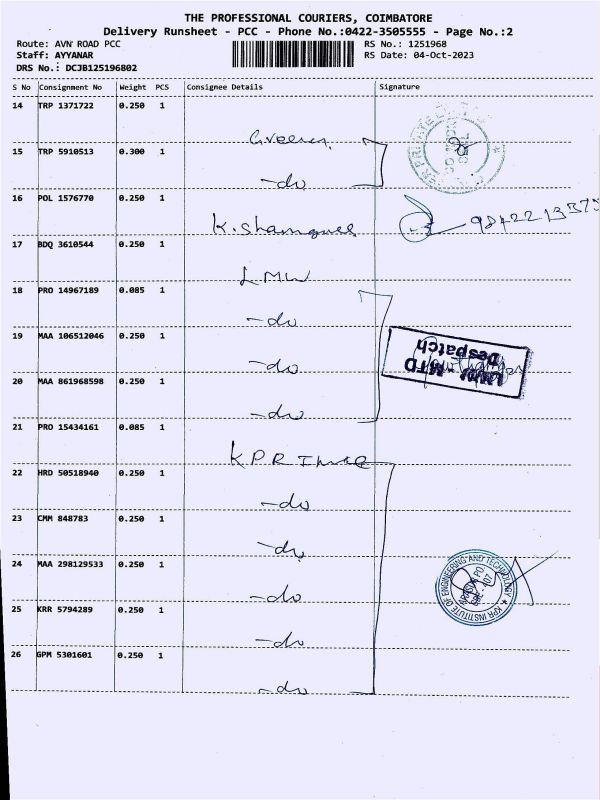 THE PROFESSIONAL COURIERS, COIMBATORE
Delivery Runsheet - PCC - Phone No.:0422-3505555 - Page No.:2
Route: AVN ROAD PCC
RS No.: 1251968
Staff: AYYANAR
RS Date: 04-Oct-2023
DRS No.: DCJB125196802
S No Consignment No Weight PCS Consignee Details Signature
14 TRP 1371722 0.250 1
15 TRP 5910513 0.300 1
-do
16 POL 1576770 0.250 1
K. 
17 BDQ 3610544 0.250 1
LMW
18 PRO 14967189 0.085 1
-do
19 MAA 106512046 0.250 1
-do
Despatch
20 MAA 861968598 0.250 1
-do
21 PRO 15434161 0.085 1
KPR
22 HRD 50518940 0.250 1
-do
23 CMM 848783 0.250 1
-do
24 MAA 298129533 0.250 1
-do
KPR INSTITUTE OF ENGINEERING AND TECHNOLOGY
25 KRR 5794289 0.250 1
-do
26 GPM 5301601 0.250 1
-do